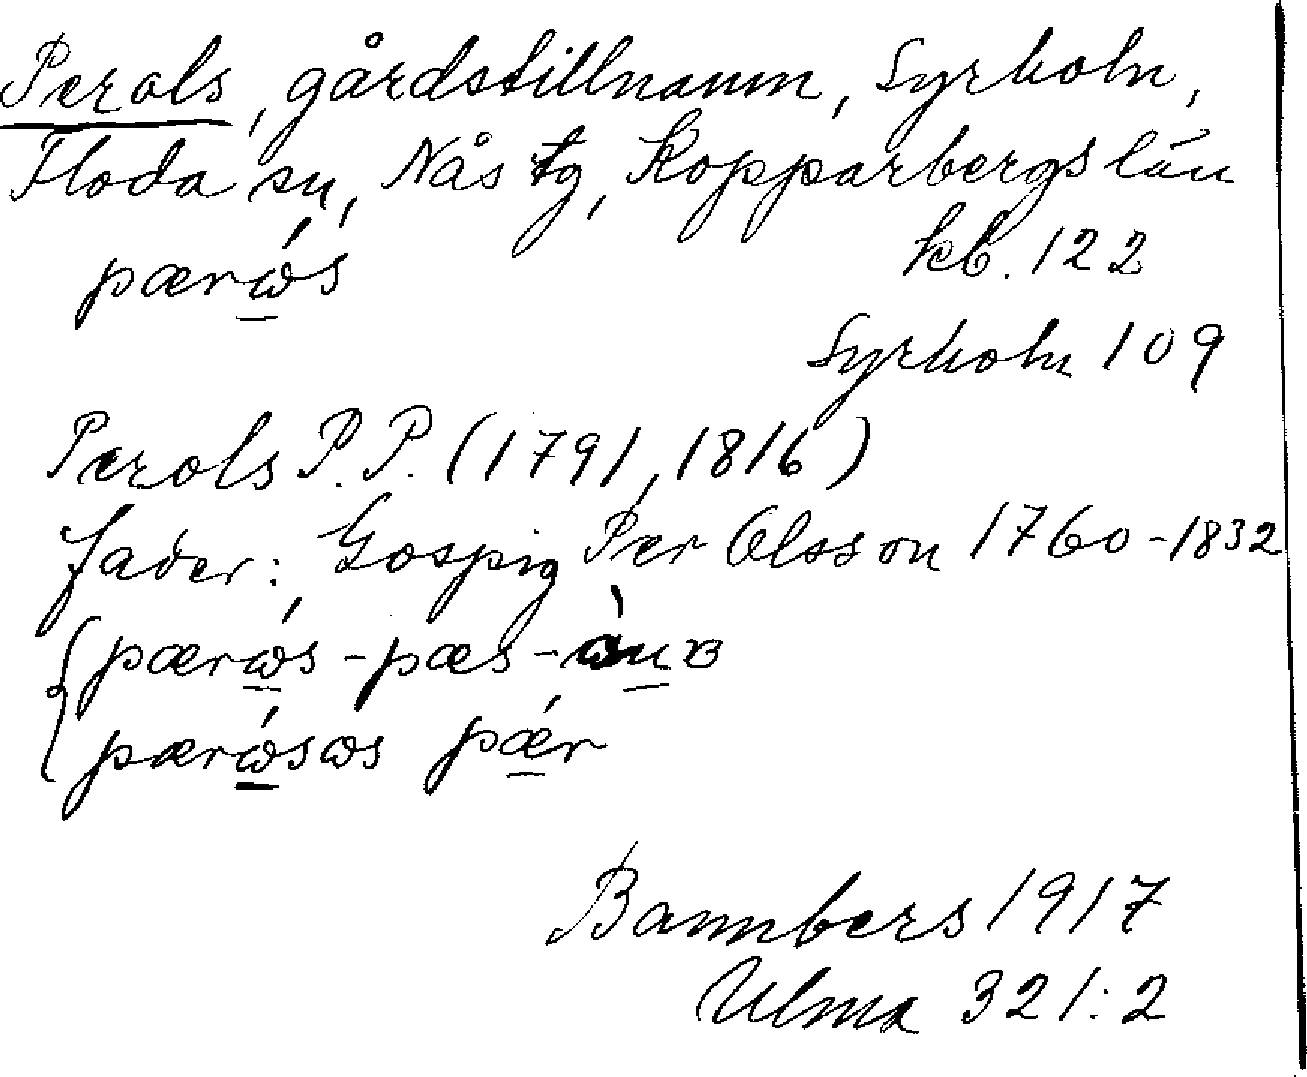 Perols, gårdstillnamn, Syrholn,
Floda sn, Nås tg, Kopparbergs län
pærώs kb. 122
Syrholn 109
Perols P. P. (1791, 1816)
fader: Gospig Per Olsson 1760-1832
pærώs - pæs -
pærώsωs pǽr
Bannbers 1917
Ulma 321:2